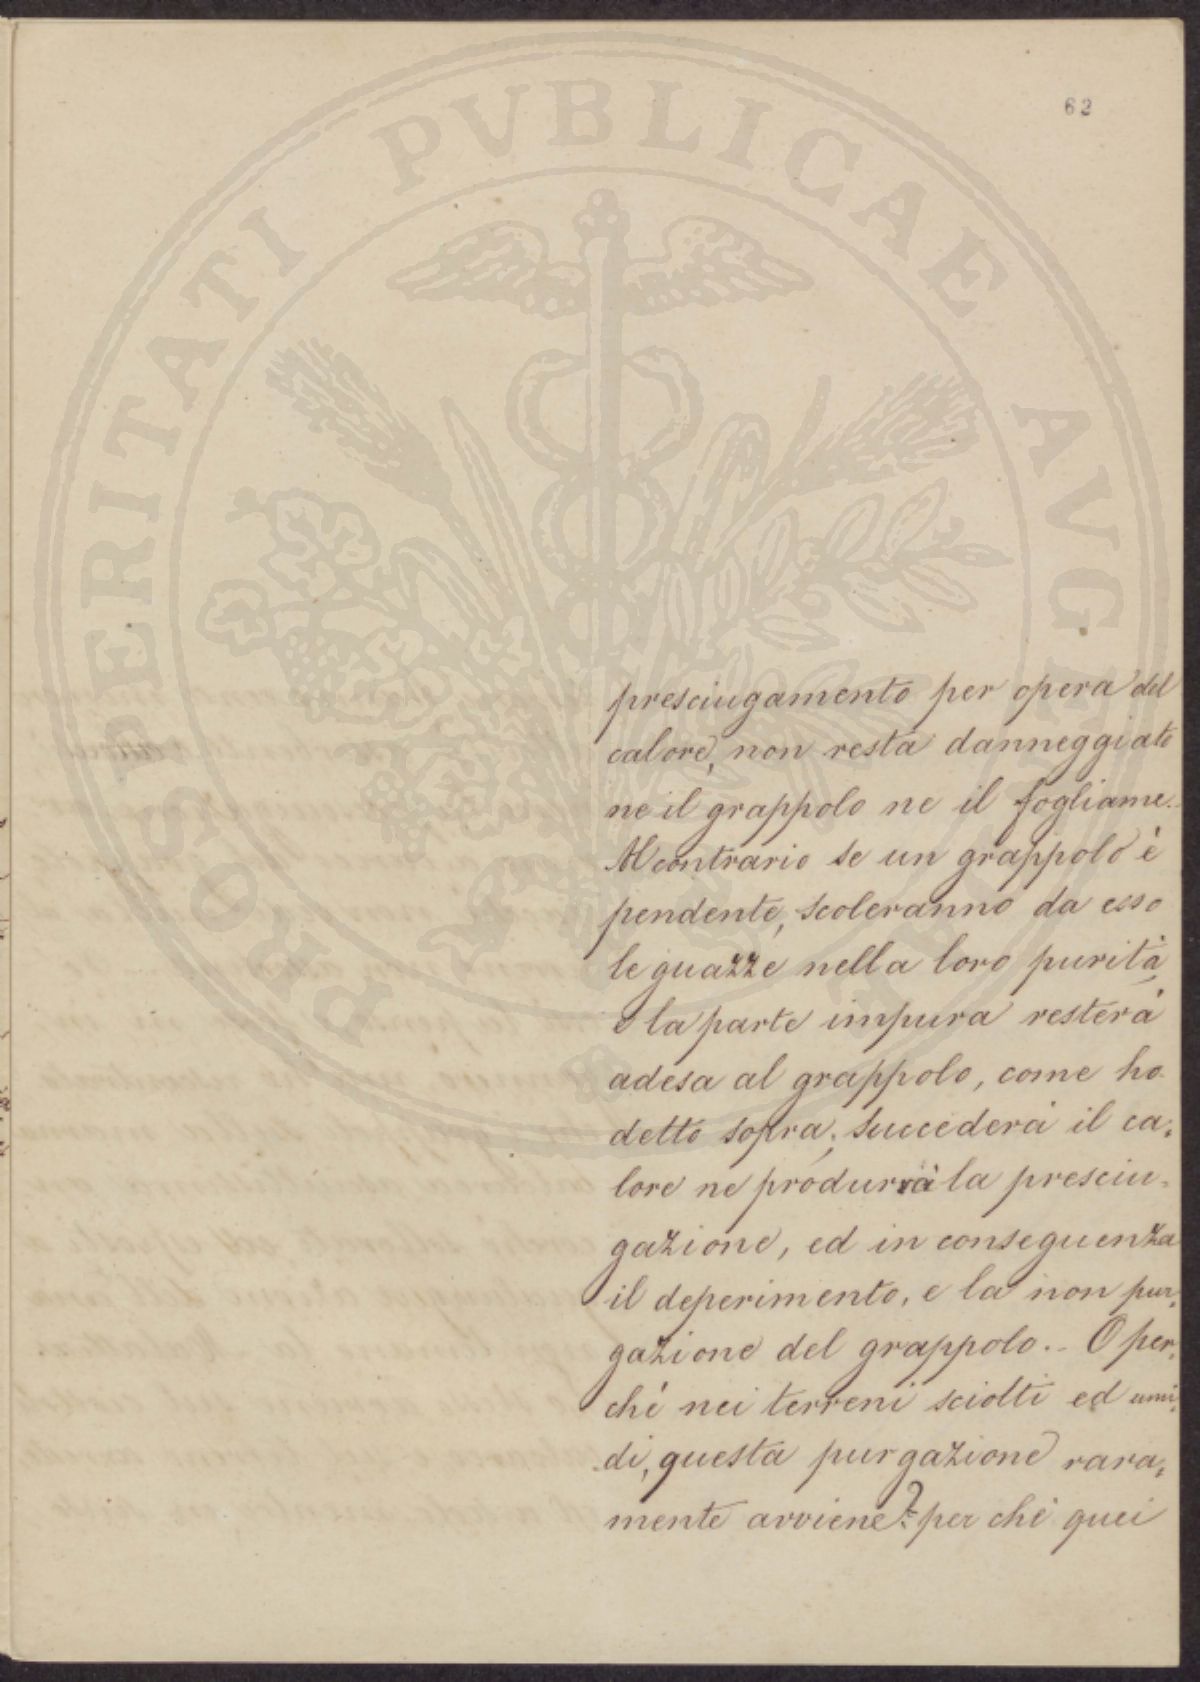 62
PROSPERITATI PVBLICAE AVGENDAE
presciugamento per opera del
calore, non resta danneggiato
ne il grappolo ne il fogliame.
Al contrario se un grappolo è
pendente, scoleranno da esso
le guazze nella loro purità,
e la parte impura resterà
adesa al grappolo, come ho
detto sopra; succederà il ca,
lore ne produrrà la presciu,
gazione, ed in conseguenza
il deperimento, e la non pur,
gazione del grappolo.. O per,
chè nei terreni sciolti ed umi,
di, questa purgazione rara,
mente avviene? per chè quei